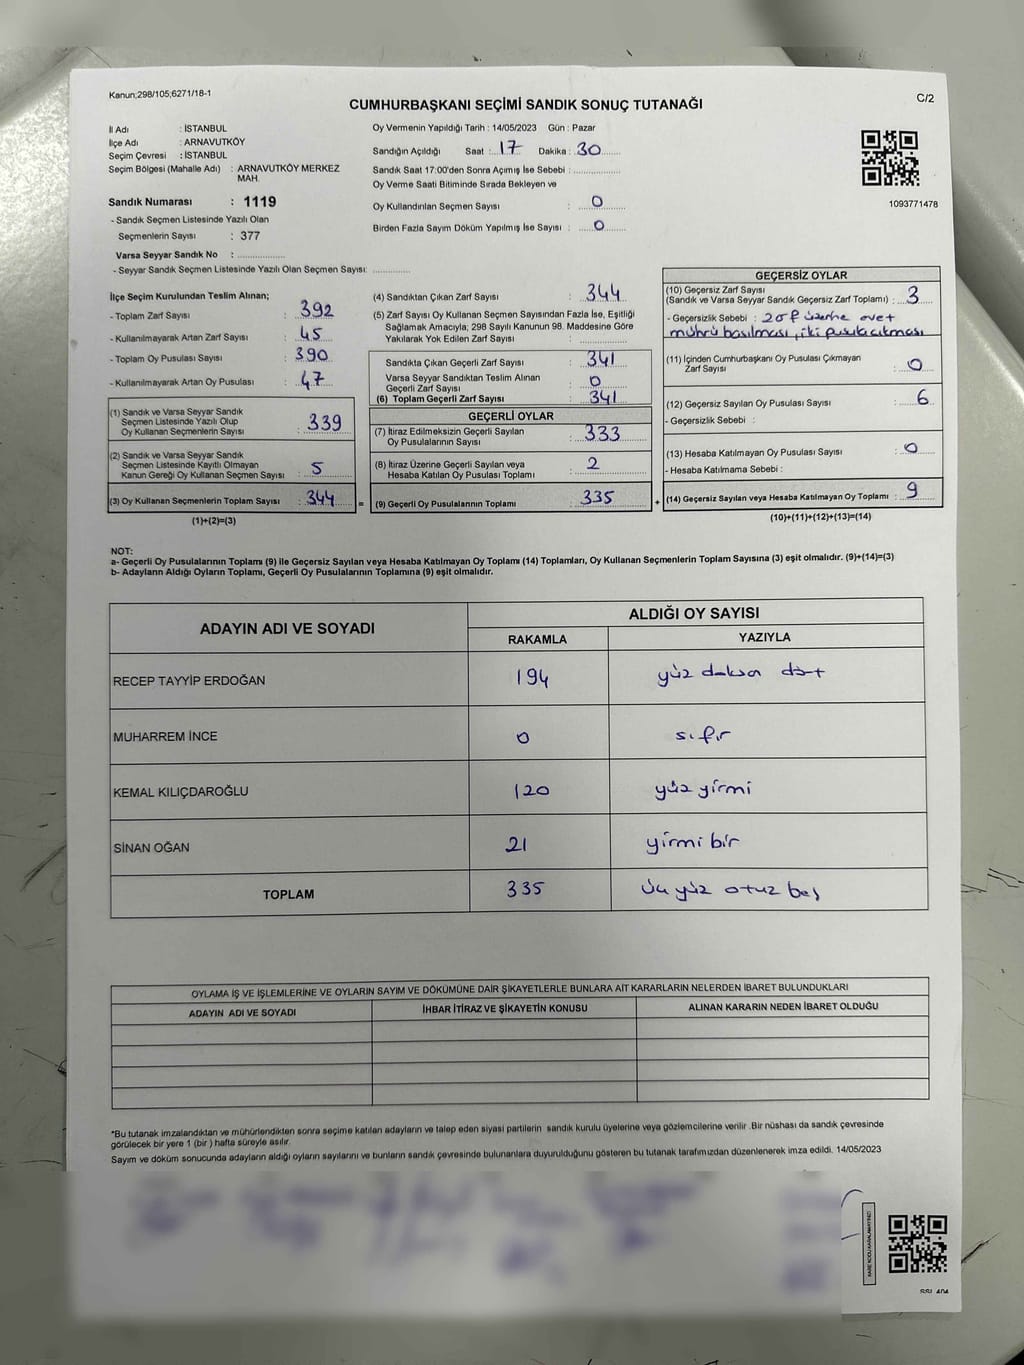 Kanun;298/105;6271/18-1
CUMHURBAŞKANI SEÇİMİ SANDIK SONUÇ TUTANAĞI
C/2
İl Adı : İSTANBUL
İlçe Adı : ARNAVUTKÖY
Seçim Çevresi : İSTANBUL
Seçim Bölgesi (Mahalle Adı) : ARNAVUTKÖY MERKEZ
MAH.
Sandık Numarası : 1119
- Sandık Seçmen Listesinde Yazılı Olan
Seçmenlerin Sayısı : 377
Varsa Seyyar Sandık No : ...............
- Seyyar Sandık Seçmen Listesinde Yazılı Olan Seçmen Sayısı: ............
Oy Vermenin Yapıldığı Tarih : 14/05/2023 Gün : Pazar
Sandığın Açıldığı Saat : 17 Dakika : 30
Sandık Saat 17:00'den Sonra Açımış İse Sebebi : ...............
Oy Verme Saati Bitiminde Sırada Bekleyen ve
Oy Kullandırılan Seçmen Sayısı : 0
Birden Fazla Sayım Döküm Yapılmış İse Sayısı : 0
1093771478
İlçe Seçim Kurulundan Teslim Alınan;
- Toplam Zarf Sayısı : 392
- Kullanılmayarak Artan Zarf Sayısı : 45
- Toplam Oy Pusulası Sayısı : 390
- Kullanılmayarak Artan Oy Pusulası : 47
(1) Sandık ve Varsa Seyyar Sandık
Seçmen Listesinde Yazılı Olup
Oy Kullanan Seçmenlerin Sayısı : 339
(2) Sandık ve Varsa Seyyar Sandık
Seçmen Listesinde Kayıtlı Olmayan
Kanun Gereği Oy Kullanan Seçmen Sayısı : 5
(3) Oy Kullanan Seçmenlerin Toplam Sayısı : 344 =
(1)+(2)=(3)
(4) Sandıktan Çıkan Zarf Sayısı : 344
(5) Zarf Sayısı Oy Kullanan Seçmen Sayısından Fazla İse, Eşitliği
Sağlamak Amacıyla; 298 Sayılı Kanunun 98. Maddesine Göre
Yakılarak Yok Edilen Zarf Sayısı : ...............
Sandıkta Çıkan Geçerli Zarf Sayısı : 341
Varsa Seyyar Sandıktan Teslim Alınan
Geçerli Zarf Sayısı : 0
(6) Toplam Geçerli Zarf Sayısı : 341
GEÇERLİ OYLAR
(7) İtiraz Edilmeksizin Geçerli Sayılan
Oy Pusulalarının Sayısı : 333
(8) İtiraz Üzerine Geçerli Sayılan veya
Hesaba Katılan Oy Pusulası Toplamı : 2
(9) Geçerli Oy Pusulalarının Toplamı : 335 +
GEÇERSİZ OYLAR
(10) Geçersiz Zarf Sayısı
(Sandık ve Varsa Seyyar Sandık Geçersiz Zarf Toplamı) : 3
- Geçersizlik Sebebi : zarf üzerine evet
mührü basılması, iki pusula çıkması
(11) İçinden Cumhurbaşkanı Oy Pusulası Çıkmayan
Zarf Sayısı : 0
(12) Geçersiz Sayılan Oy Pusulası Sayısı : 6
- Geçersizlik Sebebi :
(13) Hesaba Katılmayan Oy Pusulası Sayısı : 0
- Hesaba Katılmama Sebebi :
(14) Geçersiz Sayılan veya Hesaba Katılmayan Oy Toplamı : 9
(10)+(11)+(12)+(13)=(14)
NOT:
a- Geçerli Oy Pusulalarının Toplamı (9) ile Geçersiz Sayılan veya Hesaba Katılmayan Oy Toplamı (14) Toplamları, Oy Kullanan Seçmenlerin Toplam Sayısına (3) eşit olmalıdır. (9)+(14)=(3)
b- Adayların Aldığı Oyların Toplamı, Geçerli Oy Pusulalarının Toplamına (9) eşit olmalıdır.
ADAYIN ADI VE SOYADI
ALDIĞI OY SAYISI
RAKAMLA YAZIYLA
RECEP TAYYİP ERDOĞAN 194 yüz doksan dört
MUHARREM İNCE 0 sıfır
KEMAL KILIÇDAROĞLU 120 yüz yirmi
SİNAN OĞAN 21 yirmi bir
TOPLAM 335 üç yüz otuz beş
OYLAMA İŞ VE İŞLEMLERİNE VE OYLARIN SAYIM VE DÖKÜMÜNE DAİR ŞİKAYETLERLE BUNLARA AİT KARARLARIN NELERDEN İBARET BULUNDUKLARI
ADAYIN ADI VE SOYADI İHBAR İTİRAZ VE ŞİKAYETİN KONUSU ALINAN KARARIN NEDEN İBARET OLDUĞU
*Bu tutanak imzalandıktan ve mühürlendikten sonra seçime katılan adayların ve talep eden siyasi partilerin sandık kurulu üyelerine veya gözlemcilerine verilir .Bir nüshası da sandık çevresinde
görülecek bir yere 1 (bir ) hafta süreyle asılır.
Sayım ve döküm sonucunda adayların aldığı oyların sayılarını ve bunların sandık çevresinde bulunanlara duyurulduğunu gösteren bu tutanak tarafımızdan düzenlenerek imza edildi. 14/05/2023